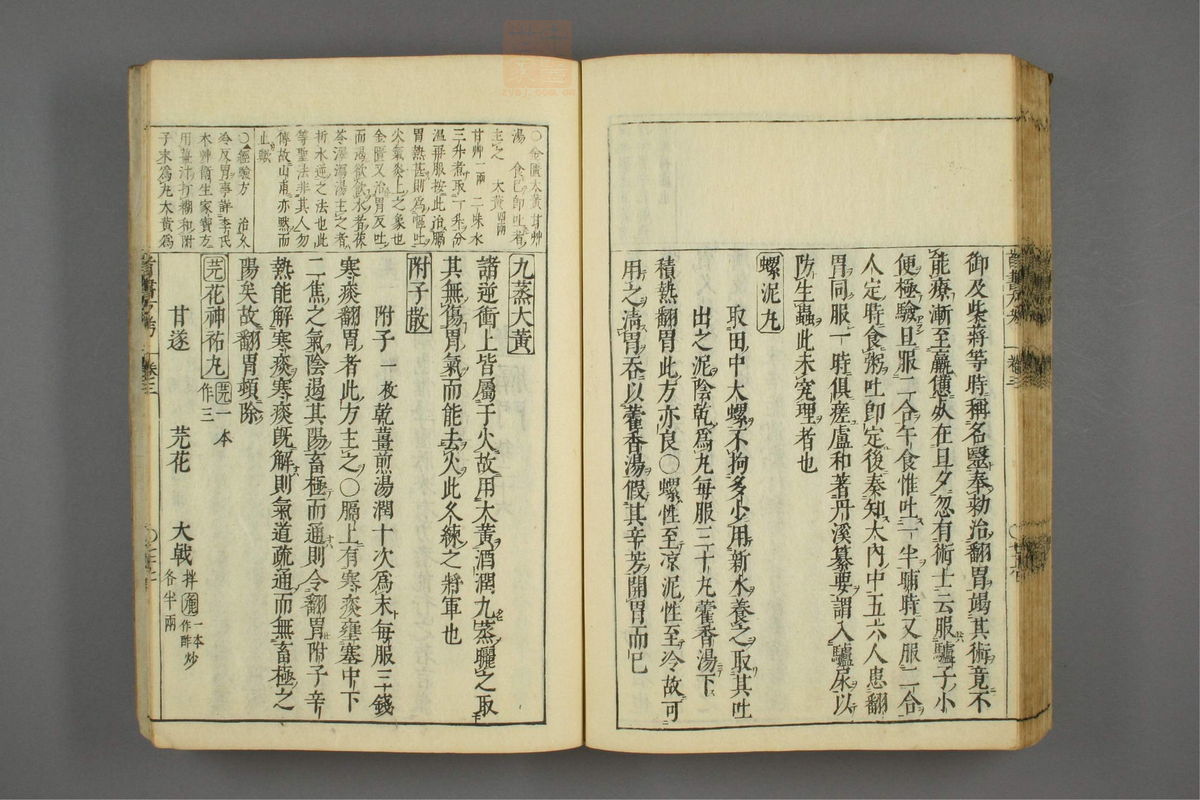 御及柴蔣等時稱名醫奉勑治翻胃竭其術竟不
能療漸至羸憊死在旦夕忽有術士云服驢子小
便極驗旦服二合午食惟吐一半晡時又服二合
人定時食粥吐即定後奏知大內中五六人患翻
胃同服一時俱瘥盧和著丹溪纂要謂入驢尿以
防生蟲此未究理者也
螺泥丸
取田中大螺不拘多少用新水養之取其吐
出之泥陰乾為丸每服三十丸藿香湯下
積熱翻胃此方亦良〇螺性至凉泥性至冷故可
用之清胃吞以藿香湯假其辛芳開胃而已
〇金匱大黃甘艸
湯 食已即吐者
主之 大黃四兩
甘艸一兩 二味水
三升煮取一升分
溫再服按此治膈
胃熱甚則為嘔吐
火氣炎上之象也
金匱又治胃反吐
而渴欲飲水者茯
苓澤瀉湯主之者
折水逆之法也此
等聖法非其人勿
傳故山甫亦默而
止歟
〇經驗方 治久
冷反胃事詳李氏
本艸衛生家寶方
用薑汁打糊和附
子末為丸大黃為
九蒸大黃
諸逆衝上皆屬于火故用大黃酒潤九蒸曬之取
其無傷胃氣而能去火此久練之將軍也
附子散
附子一枚乾薑煎湯潤十次為末每服三錢
寒痰翻胃者此方主之〇膈上有寒痰壅塞中下
二焦之氣陰遏其陽畜極而通則令翻胃附子辛
熱能解寒痰寒痰既解則氣道疏通而無畜極之
陽矣故翻胃頓除
芫花神祐丸 芫一本作三
甘遂 芫花 大戟拌麵一本作醋炒各半兩
卷三
卷三